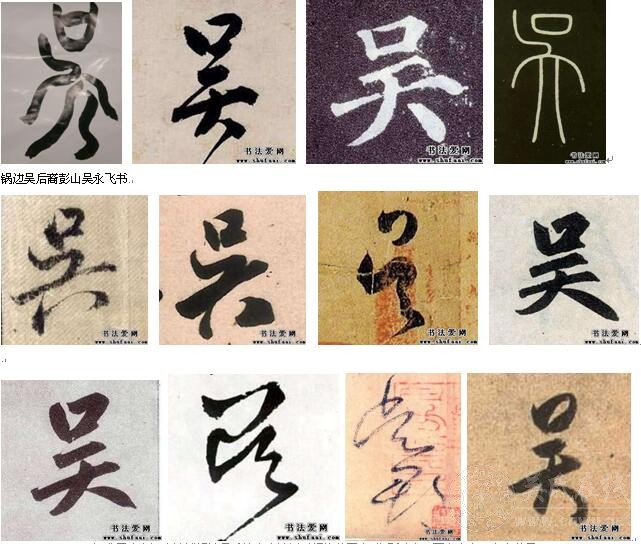 吴 吴 吴 吴
书法爱网 书法爱网 书法爱网
www.shufaai.com www.shufaai.com www.shufaai.com
锅边吴后裔彭山吴永飞书
吴 吴 吴 吴
书法爱网 书法爱网 书法爱网 书法爱网
www.shufaai.com www.shufaai.com www.shufaai.com www.shufaai.com
吴 吴 吴
书法爱网
www.shufaai.com